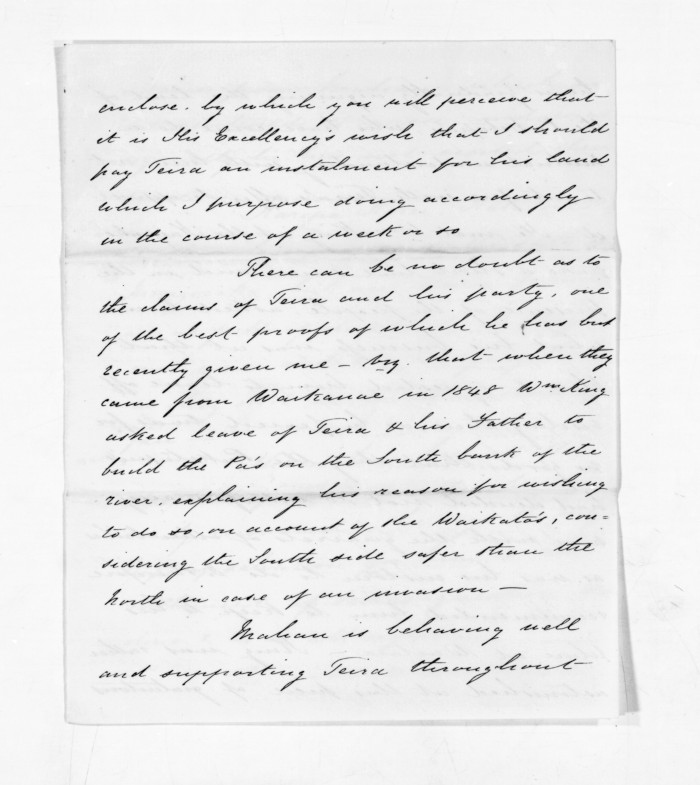 enclose. by which you will perceive that
it is His Excellency's wish that I should
pay Teira an instalment for his land
which I purpose doing accordingly
in the course of a week or so
There can be no doubt as to
the claims of Teira and his party, one
of the best proofs of which he has but
recently given me – viz. that when they
came from Waikanae in 1848 Wm King
asked leave of Teira & his Father to
build the Pa's on the South bank of the
river, explaining his reason for wishing
to do so, on account of the Waikato's, con=
sidering the South side safer than the
North in case of an invasion —
Mahau is behaving well
and supporting Teira throughout